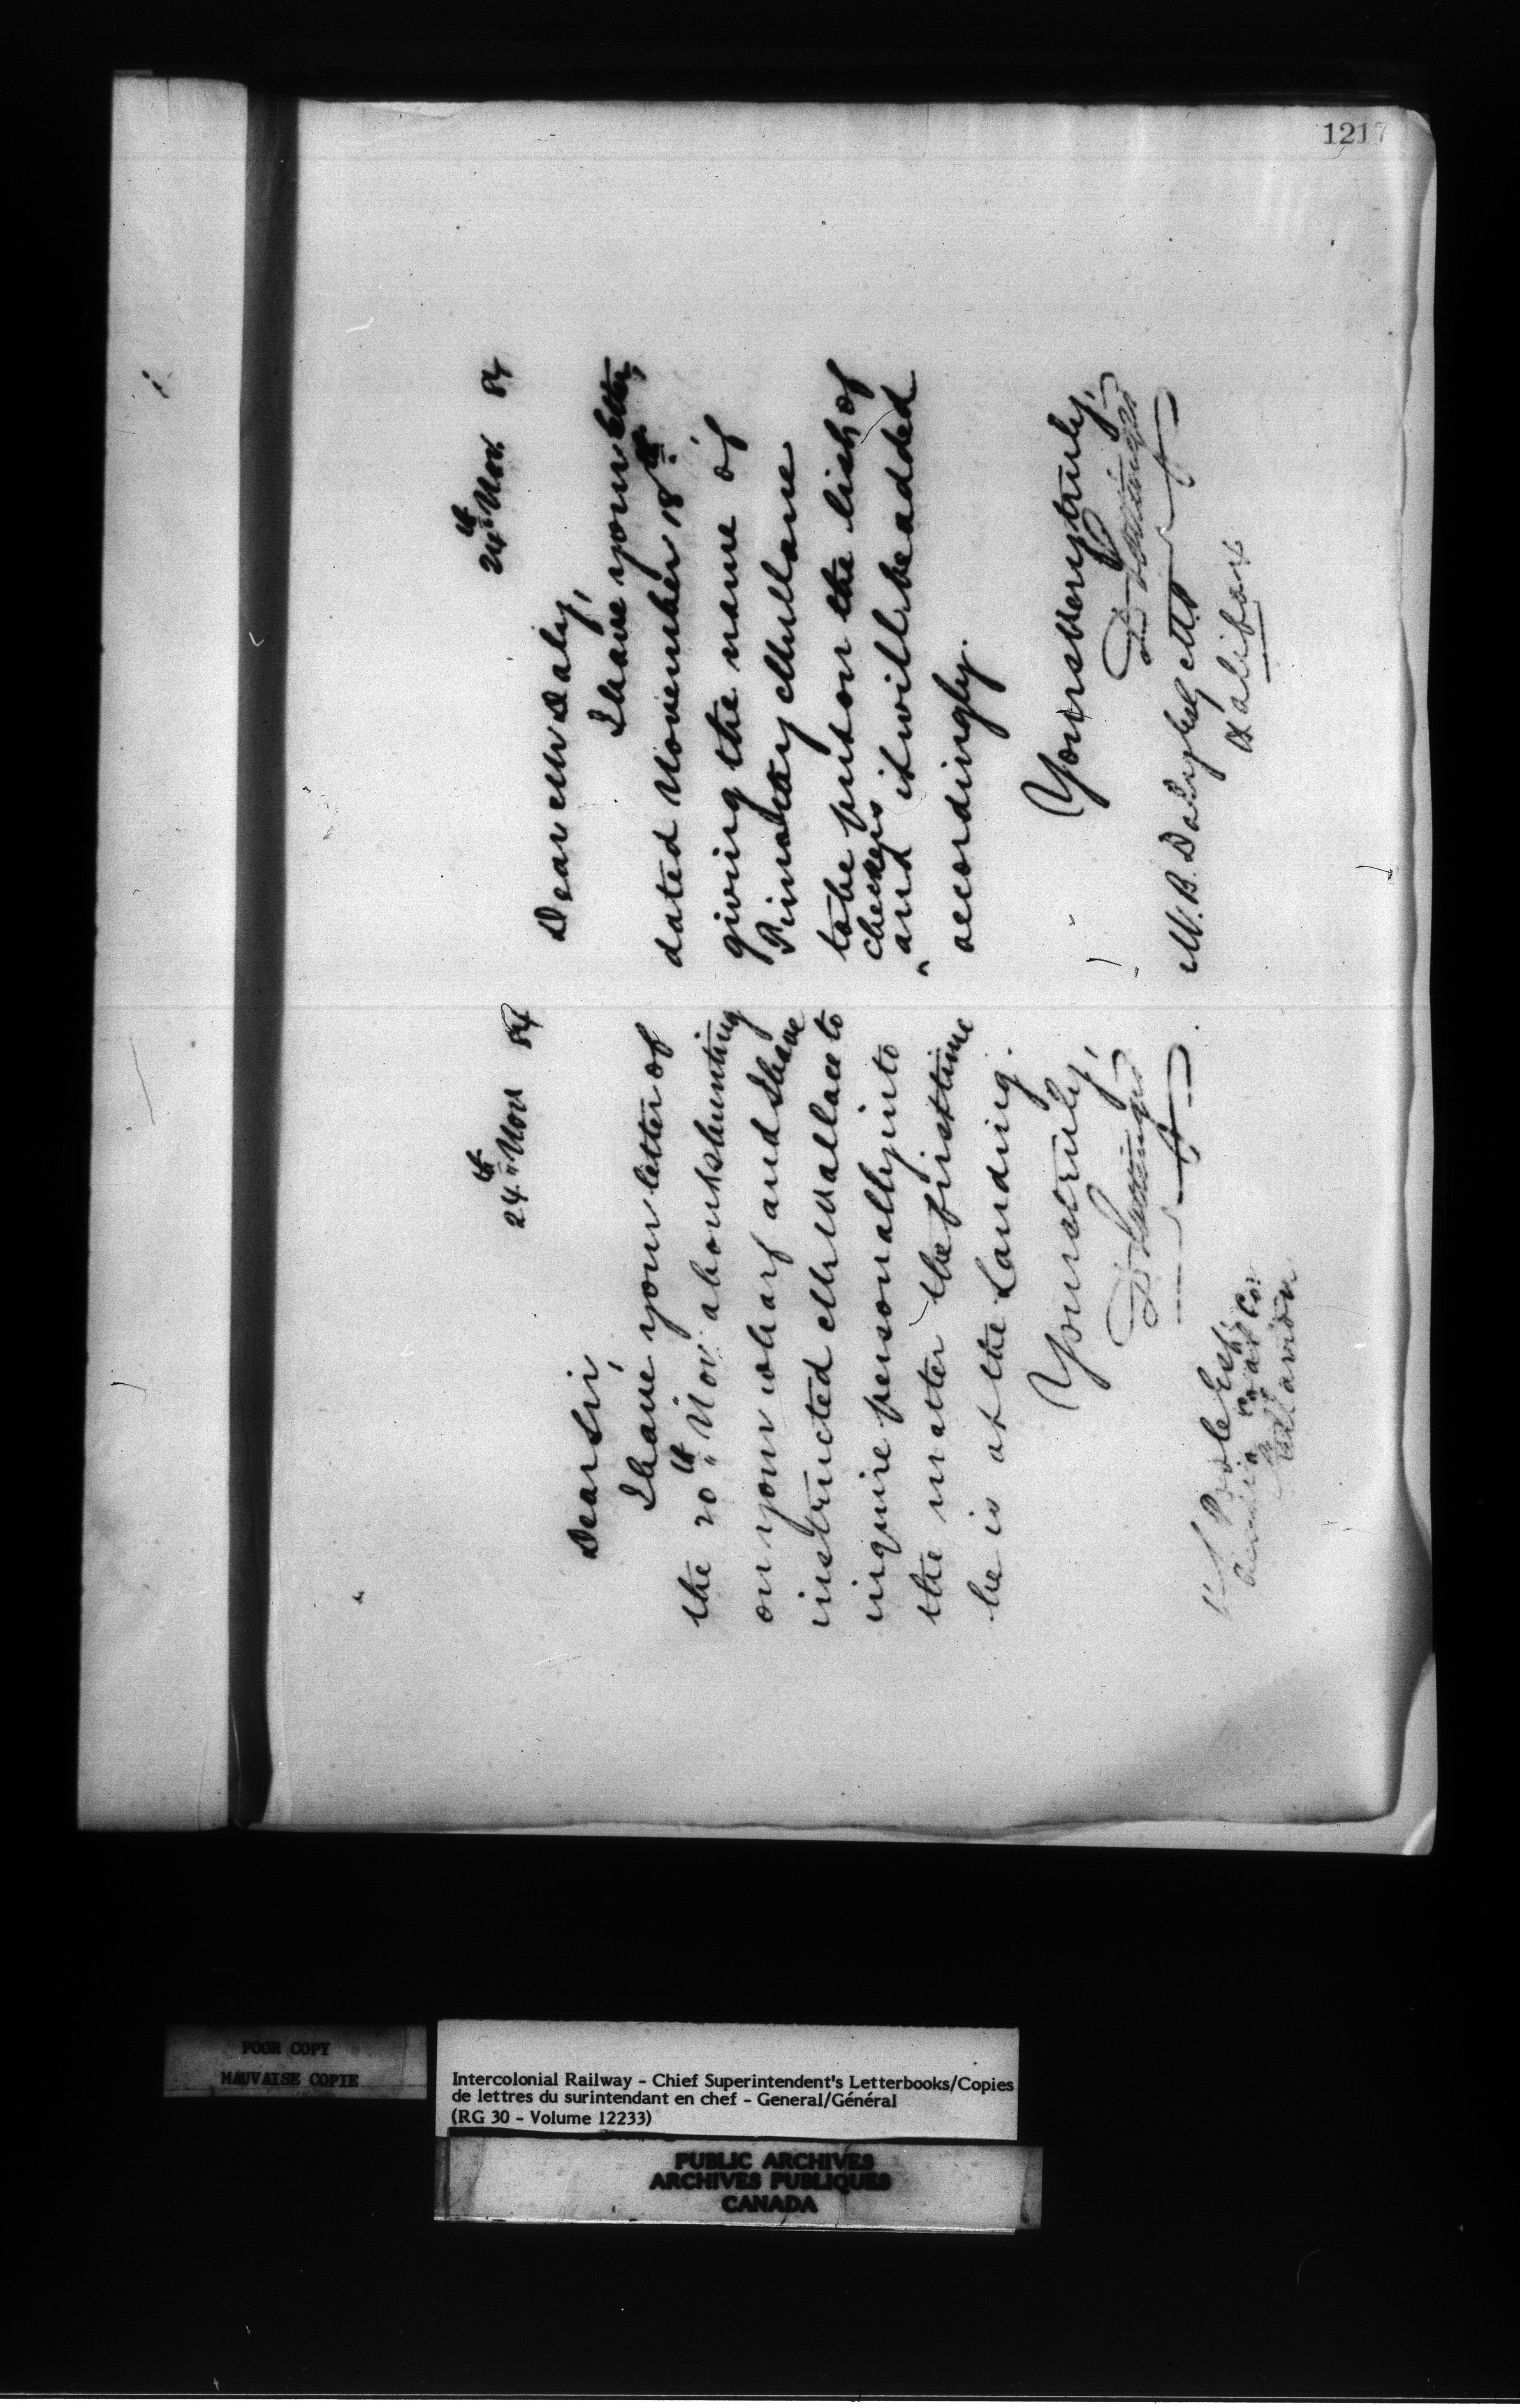 1217
24th Nov 84
Dear Sir,
I have your letter of
the 20th Nov. about shunting
on your wharf and I have
instructed Mr Wallace to
inquire personally into
the matter the first time
he is at the Landing.
Yours truly,
D Pottinger
H S Poole Esq
Acadia Coal Co.
Stellarton
24th Nov. 84
Dear Mr Daly,
I have your letter,
dated November 18th.
giving the name of
Timothy Mullane
to be put on the list of
checkers
and it will be added
accordingly.
Yours very truly,
D Pottinger
M. B. Daly Esq M.P.
Halifax
POOR COPY
MAUVAISE COPIE
Intercolonial Railway - Chief Superintendent's Letterbooks/Copies
de lettres du surintendant en chef - General/Général
(RG 30 - Volume 12233)
PUBLIC ARCHIVES
ARCHIVES PUBLIQUES
CANADA